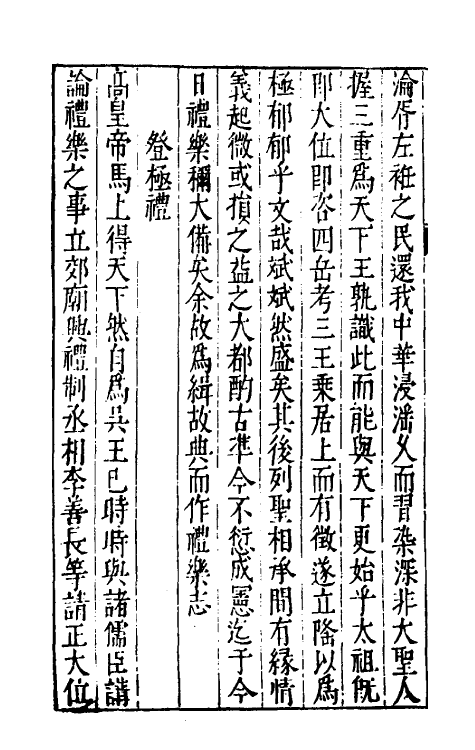 淪胥左袵之民還我中華浸淫久而習染深非大聖人
握三重爲天下王孰識此而能與天下更始乎太祖旣
即大位即咨四岳考三王乘居上而有徵遂立隆以爲
極郁郁乎文哉斌斌然盛矣其後列聖相承間有緣情
義起微或損之益之大都酌古準今不愆成憲迄于今
日禮樂稱大備矣余故爲緝故典而作禮樂志
登極禮
高皇帝馬上得天下然自爲吳王已時時與諸儒臣講
論禮樂之事立郊廟興禮制丞相李善長等請正大位